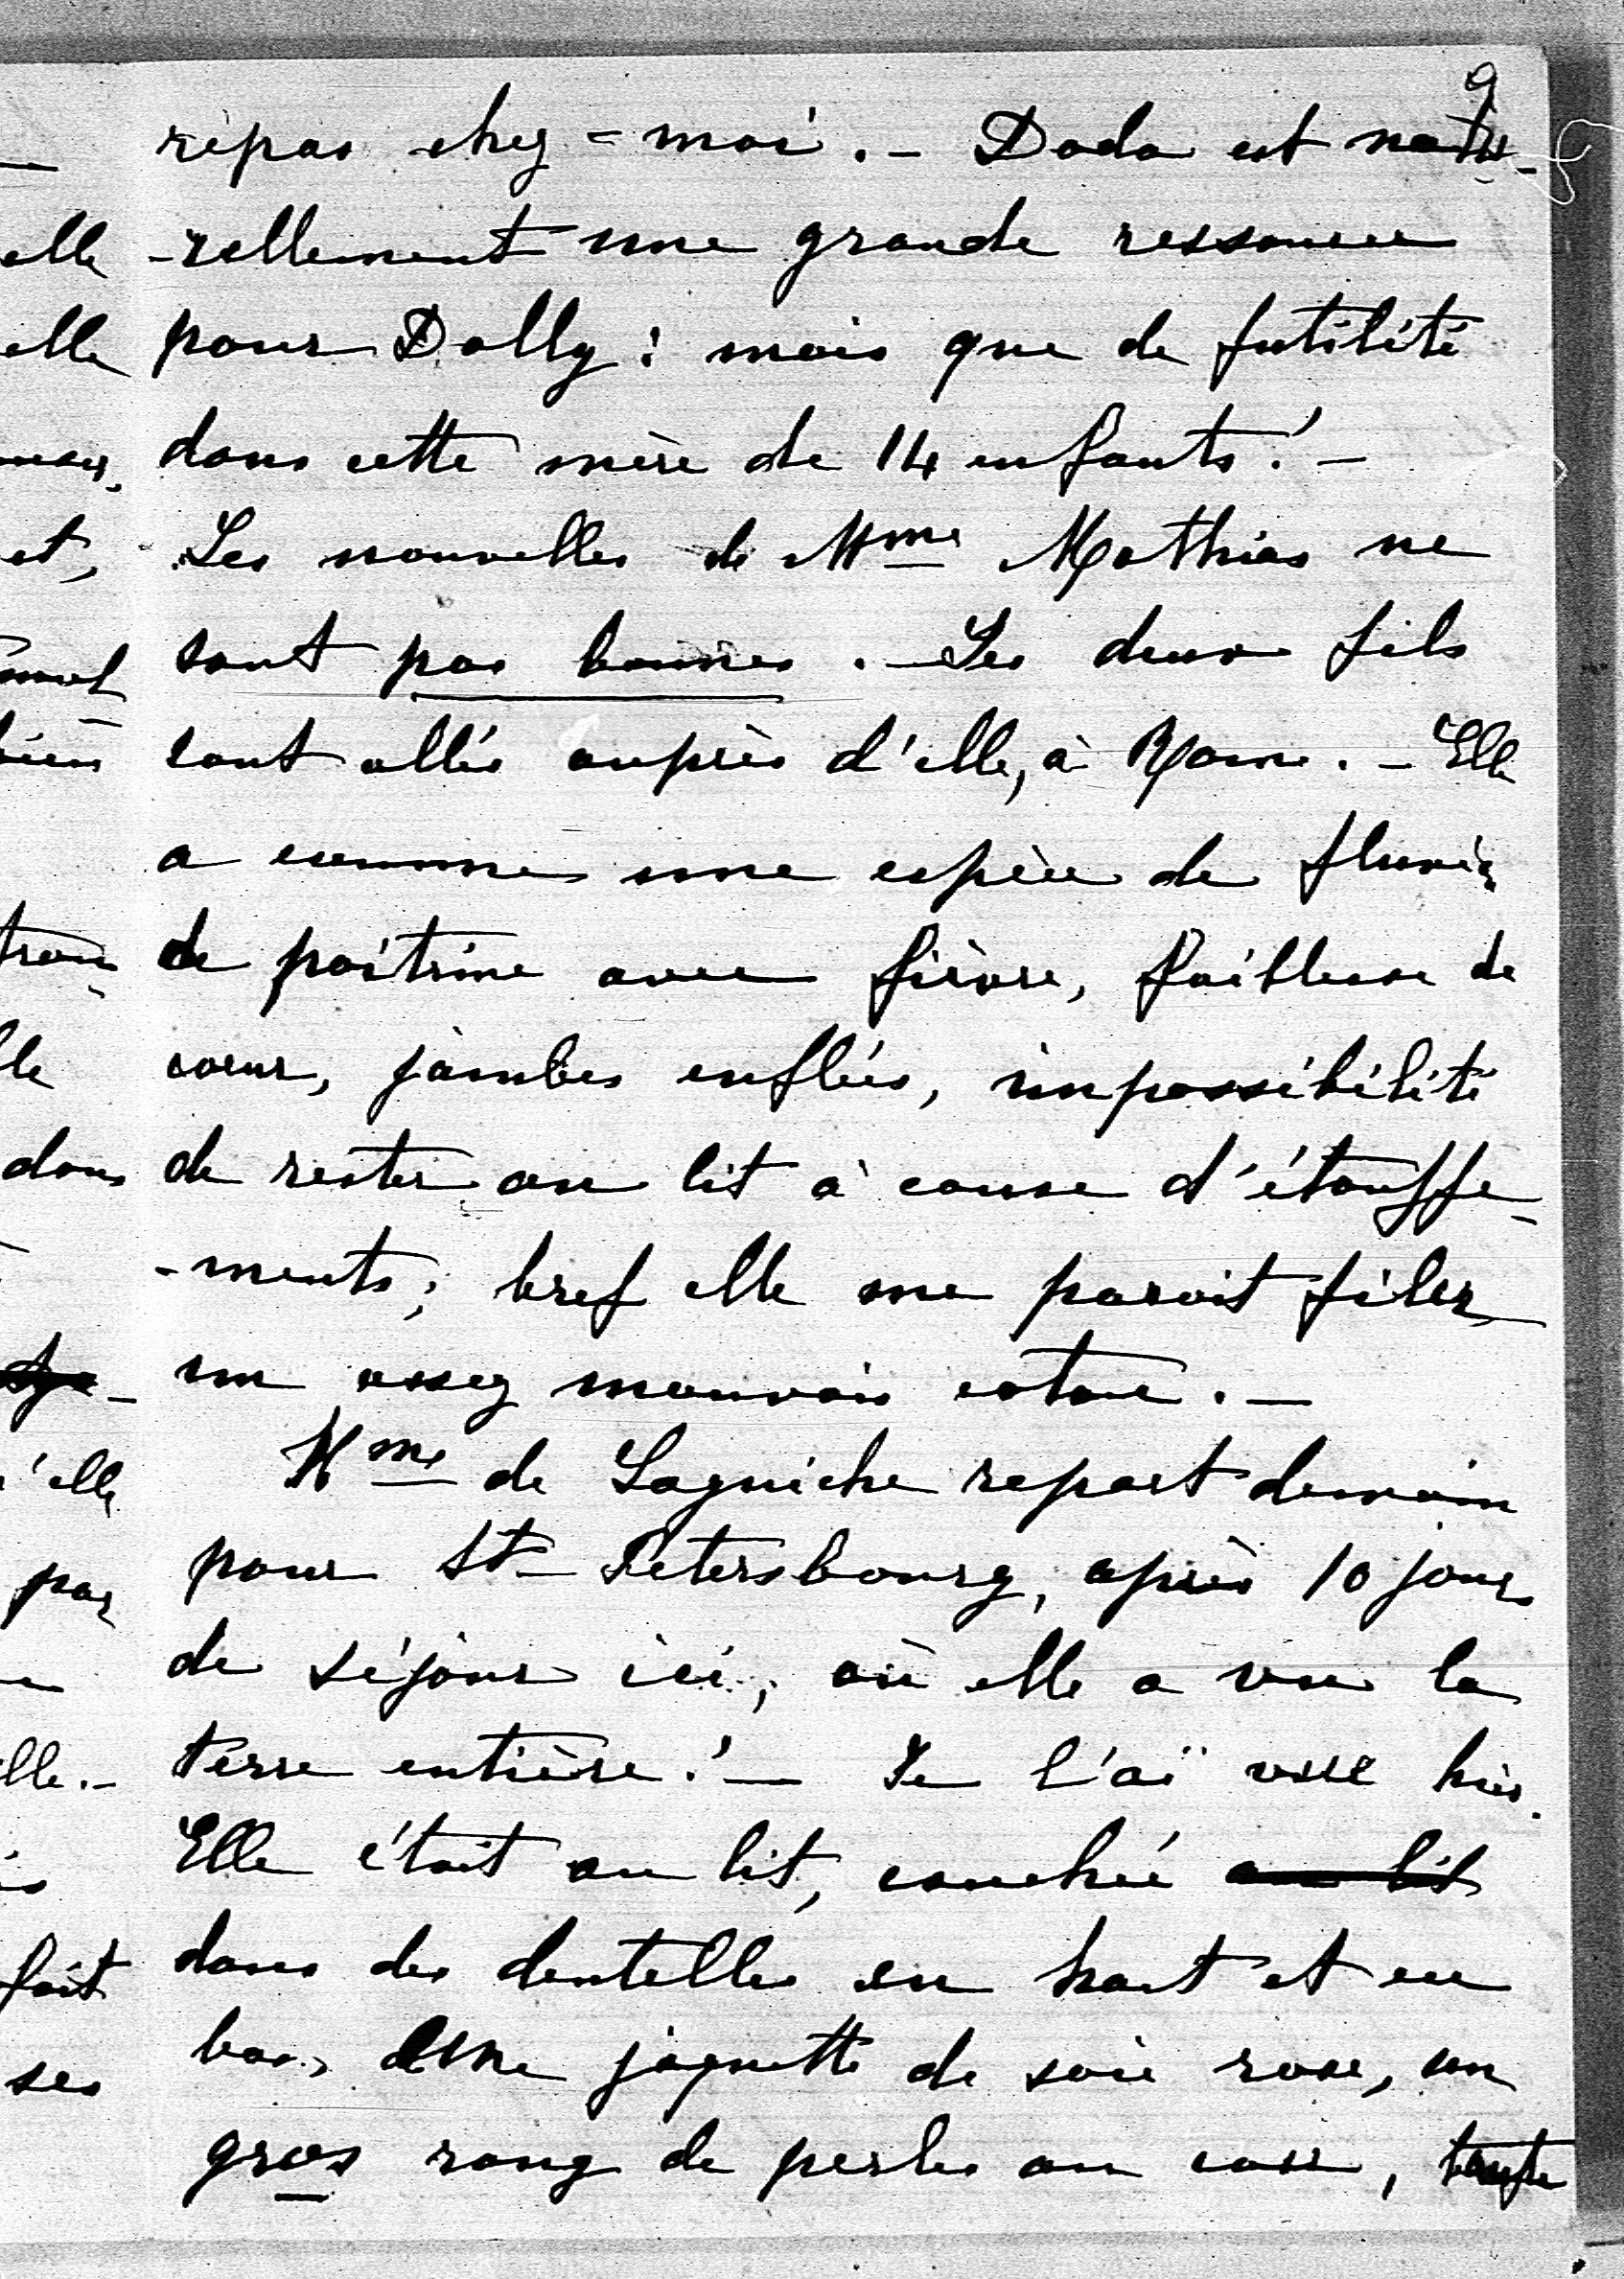 9
repas chez-moi. – Doda est natu-
-rellement une grande ressource
pour Dolly: mais que de futilité
dans cette mère de 14 enfants! –
Les nouvelles de Mme Mathias ne
sont pas bonnes. – Les deux fils
sont allés auprès d'elle, à Rome. – Elle
a comme une espèce de fluxion
de poitrine avec fièvre, faiblesse de
coeur, jambes enflées, impossibilité
de rester au lit à cause d'étouffe-
-ments; bref elle me parait filer
un assez mauvais coton. –
Mme de Laguiche repart demain
pour St Petersbourg, après 10 jours
de séjour ici, où elle a vu la
terre entière! – Je l'ai vue hier.
Elle était au lit, couchée au lit
dans des dentelles en haut et en
bas, une jaquette de soie rose, un
gros rang de perles au cou, toute